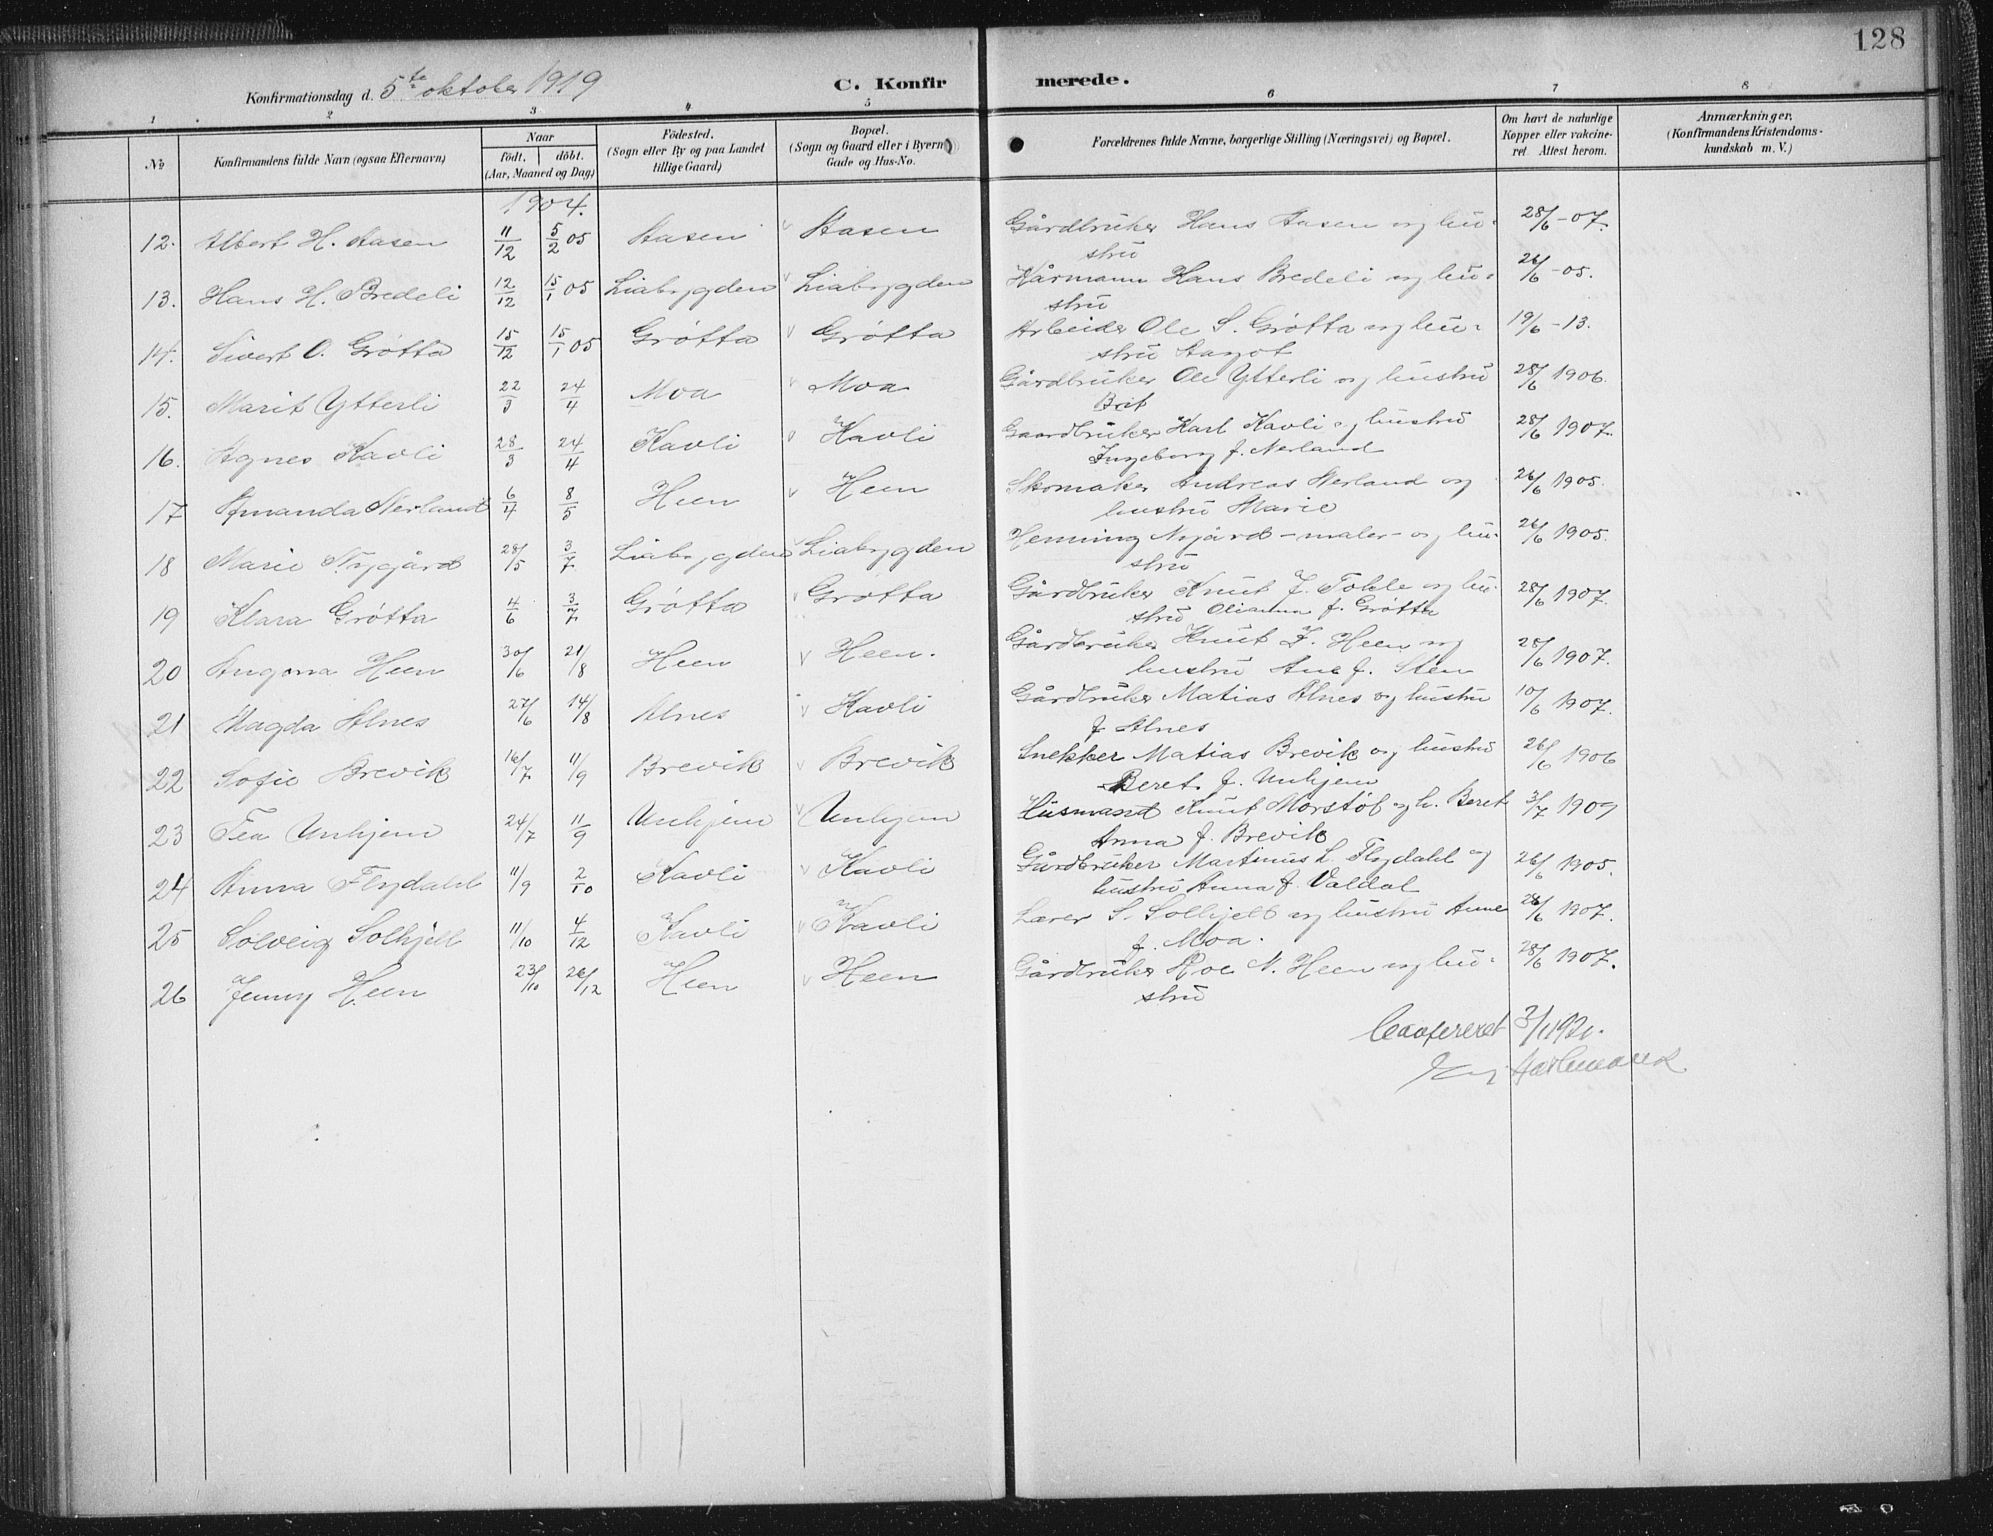 128
Konfirmationsdag d. 5te oktober 1919
C. Konfirmerede.
1 2 3 4 5 6 7 8
№
Konfirmandens fulde Navn (ogsaa Efternavn)
Naar
födt. döbt.
(Aar, Maaned og Dag)
Födested.
(Sogn eller By og paa Landet
tillige Gaard)
Bopæl.
(Sogn og Gaard eller i Byern
Gade og Hus-No.
Forældrenes fulde Navne, borgerlige Stilling (Næringsvei) og Bopæl.
Om havt de naturlige
Kopper eller vakcine-
ret Attest herom.
Anmærkninger.
(Konfirmandens Kristendoms-
kundskab m. V.)
1904.
12. Albert H. Aasen 11/12 5/2 05 Aasen Aasen Gårdbruker Hans Aasen og hu- 28/6 -07.
stru
13. Hans H. Bredeli 12/12 15/1 05 Liabygden Liabygden Kårmann Hans Bredeli og hu- 26/6 -05.
stru
14. Sivert O. Grótta 15/12 15/1 05 Grótta Grótta Arbeider Ole S. Grótta og hu- 19/6 -13.
stru Aagot
15. Marit Ytterli 22/3 24/4 Moa Moa Gårdbruker Ole Ytterli og hustru 28/6 1906.
Brit
16. Agnes Kavli 28/3 24/4 Kavli Kavli Gaardbruker Karl Kavli og hustru 28/6 1907.
Ingeborg f. Nerland
17 Amanda Nerland 6/4 8/5 Heen Heen Skomaker Andreas Nerland og 26/6 1905.
hustru Marie
18 Marie Nygård 28/5 3/7 Liabygden Liabygden Henning Nygård - maler - og hu- 26/6 1905.
stru
19 Klara Grótta 4/6 3/7 Grótta Grotta Gårdbruker Knut J. Tokle og hu- 28/6 1907.
stru Olianna f. Grótta
20 Heen 30/6 21/8 Heen Heen. Gårdbruker Knut J. Heen og 28/6 1907.
hustru Ane f. Sten
21 Magda Alnes 27/6 14/8 Alnes Kavli Gårdbruker Matias Alnes og hustru 10/6 1907.
f Alnes
22 Sofie Brevik 16/7 11/9 Brevik Brevik Snekker Matias Brevik og hustru 26/6 1906
Beret f. Unhjem
23 Tea Unhjem 24/7 11/9 Unhjem Unhjem Husmand Knut Morstöl og h. Beret 3/7 1909
Anna f. Brevik
24 Anna Flydahl 11/9 2/10 Kavli Kavli Gårdbruker Martinus L. Flydahl og 26/6 1905.
hustru Anna f. Valdal
25 Solveig Solhjell 11/10 4/12 Kavli Kavli Lærer S. Solhjell og hustru Anne 28/6 1907.
f. Moa.
26 Jenny Heen 23/10 26/12 Heen Heen Gårdbruker Roe N. Heen og hu- 28/6 1907.
stru